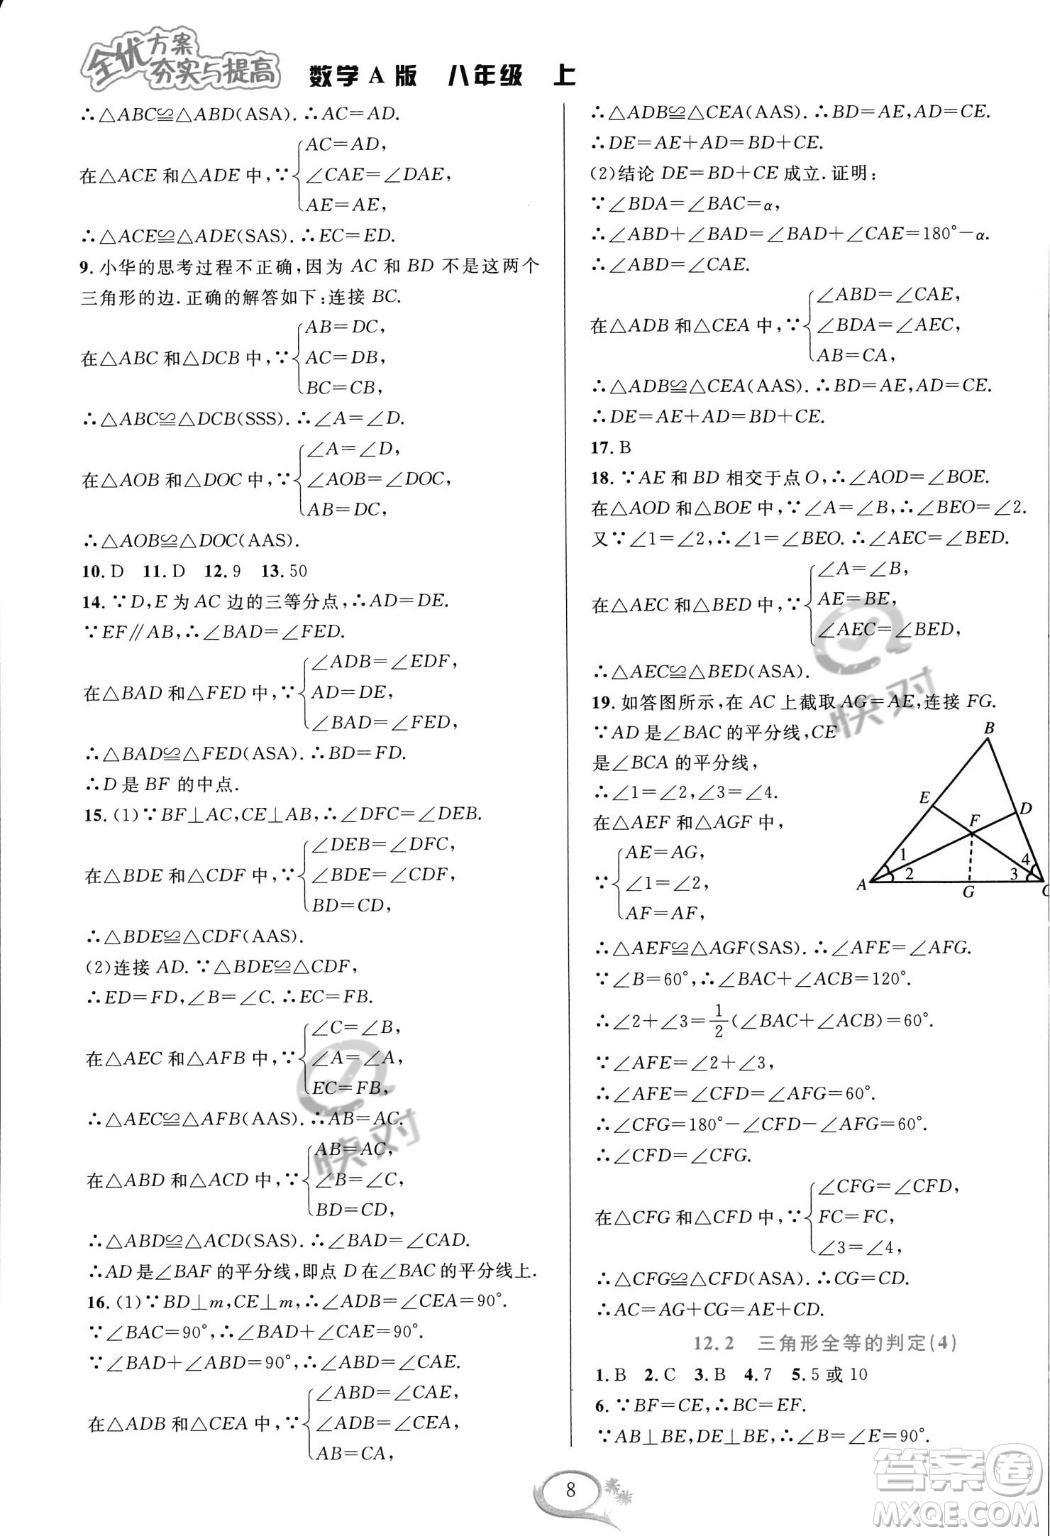 全优方案
夯实与提高
数学A版 八年级 上
∴△ABC≌△ABD(ASA).∴AC=AD.
AC=AD,
在△ACE和△ADE中,∵
∠CAE=∠DAE,
AE=AE,
∴△ACE≌△ADE(SAS).∴EC=ED.
9.小华的思考过程不正确,因为AC和BD不是这两个
三角形的边.正确的解答如下:连接BC.
AB=DC,
在△ABC和△DCB中,∵
AC=DB,
BC=CB,
∴△ABC≌△DCB(SSS).∴∠A=∠D.
∠A=∠D,
在△AOB和△DOC中,∵
∠AOB=∠DOC,
AB=DC,
∴△AOB≌△DOC(AAS).
10.D 11.D 12.9 13.50
14.∵D,E为AC边的三等分点,∴AD=DE.
∵EF∥AB,∴∠BAD=∠FED.
∠ADB=∠EDF,
在△BAD和△FED中,∵
AD=DE,
∠BAD=∠FED,
∴△BAD≌△FED(ASA).∴BD=FD.
∴D是BF的中点.
15.(1)∵BF⊥AC,CE⊥AB,∴∠DFC=∠DEB.
∠DEB=∠DFC,
在△BDE和△CDF中,∵
∠BDE=∠CDF,
BD=CD,
∴△BDE≌△CDF(AAS).
(2)连接AD.∵△BDE≌△CDF,
∴ED=FD,∠B=∠C.∴EC=FB.
∠C=∠B,
在△AEC和△AFB中,∵
∠A=∠A,
EC=FB,
∴△AEC≌△AFB(AAS).∴AB=AC.
AB=AC,
在△ABD和△ACD中,∵
∠B=∠C,
BD=CD,
∴△ABD≌△ACD(SAS).∴∠BAD=∠CAD.
∴AD是∠BAF的平分线,即点D在∠BAC的平分线上.
16.(1)∵BD⊥m,CE⊥m,∴∠ADB=∠CEA=90°.
∵∠BAC=90°,∴∠BAD+∠CAE=90°.
∵∠BAD+∠ABD=90°,∴∠CAE=∠ABD.
∠ABD=∠CAE,
在△ADB和△CEA中,∵
∠ADB=∠CEA,
AB=CA,
∴△ADB≌△CEA(AAS).∴BD=AE,AD=CE.
∴DE=AE+AD=BD+CE.
(2)结论DE=BD+CE成立.证明:
∵∠BDA=∠BAC=α,
∴∠ABD+∠BAD=∠BAD+∠CAE=180°-α.
∴∠ABD=∠CAE.
∠ABD=∠CAE,
在△ADB和△CEA中,∵
∠BDA=∠AEC,
AB=CA,
∴△ADB≌△CEA(AAS).∴BD=AE,AD=CE.
∴DE=AE+AD=BD+CE.
17.B
18.∵AE和BD相交于点O,∴∠AOD=∠BOE.
在△AOD和△BOE中,∵∠A=∠B,∴∠BEO=∠2.
又∵∠1=∠2,∴∠1=∠BEO.∴∠AEC=∠BED.
∠A=∠B,
在△AEC和△BED中,∵
AE=BE,
∠AEC=∠BED,
∴△AEC≌△BED(ASA).
19.如答图所示,在AC上截取AG=AE,连接FG.
∵AD是∠BAC的平分线,CE
是∠BCA的平分线,
∴∠1=∠2,∠3=∠4.
在△AEF和△AGF中,
AE=AG,
∵
∠1=∠2,
AF=AF,
B
E
F
D
1
2
4
3
A
G
C
∴△AEF≌△AGF(SAS).∴∠AFE=∠AFG.
∵∠B=60°,∴∠BAC+∠ACB=120°.
∴∠2+∠3=1/2(∠BAC+∠ACB)=60°.
∵∠AFE=∠2+∠3,
∴∠AFE=∠CFD=∠AFG=60°.
∴∠CFG=180°-∠CFD-∠AFG=60°.
∴∠CFD=∠CFG.
∠CFG=∠CFD,
在△CFG和△CFD中,∵
FC=FC,
∠3=∠4,
∴△CFG≌△CFD(ASA).∴CG=CD.
∴AC=AG+CG=AE+CD.
12.2 三角形全等的判定(4)
1.B 2.C 3.B 4.7 5.5或10
6.∵BF=CE,∴BC=EF.
∵AB⊥BE,DE⊥BE,∴∠B=∠E=90°.
8
快对
快对
答案卷
MXQE.COM